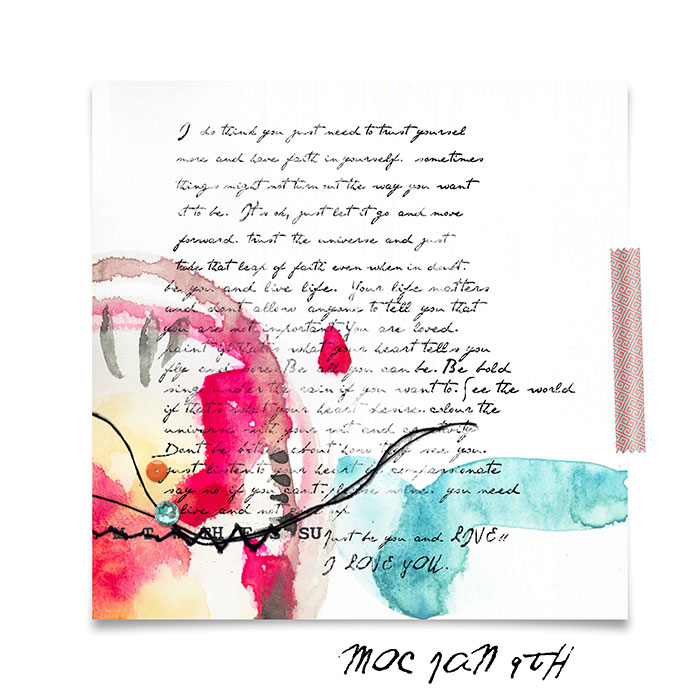 I do think you just need to trust yoursel
more and have faith in yourself. sometimes
things might not turn out the way you want
it to be. It's ok, just let it go and move
forward. trust the universe and just
take that leap of faith even when in doubt.
be you and live life. Your life matters
and dont allow anyone to tell you that
you are not important. You are loved.
paint if that's what your heart tells you
fly and Be all you can be. Be bold
sing under the rain if you want to. See the world
if that's what your heart desire. colour the
universe with your wit and creativity
Dont be about how they see you.
just listen to your heart be compassionate
say no if you cant. please you need
live and not give up.
SU just be you and LIVE!!
I LOVE YOU.
MOC JAN 9TH